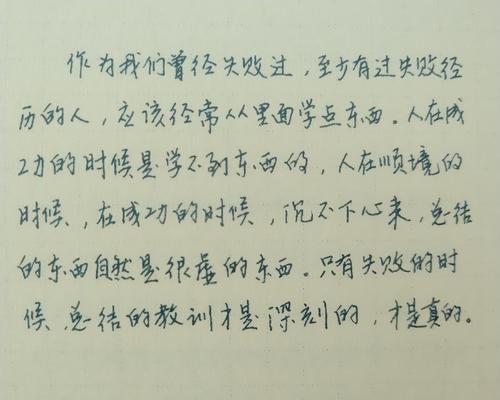 作为我们曾经失败过，至少有过失败经
历的人，应该经常从里面学点东西。人在成
功的时候是学不到东西的，人在顺境的
时候，在成功的时候，沉不下心来，总结
的东西自然是很虚的东西。只有失败的时
候，总结的教训才是深刻的，才是真的。